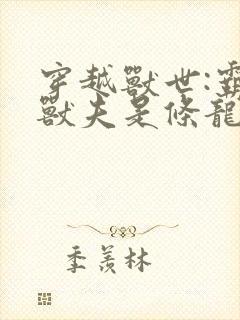 穿越獸世:霸
獸夫是條龍
季羨林